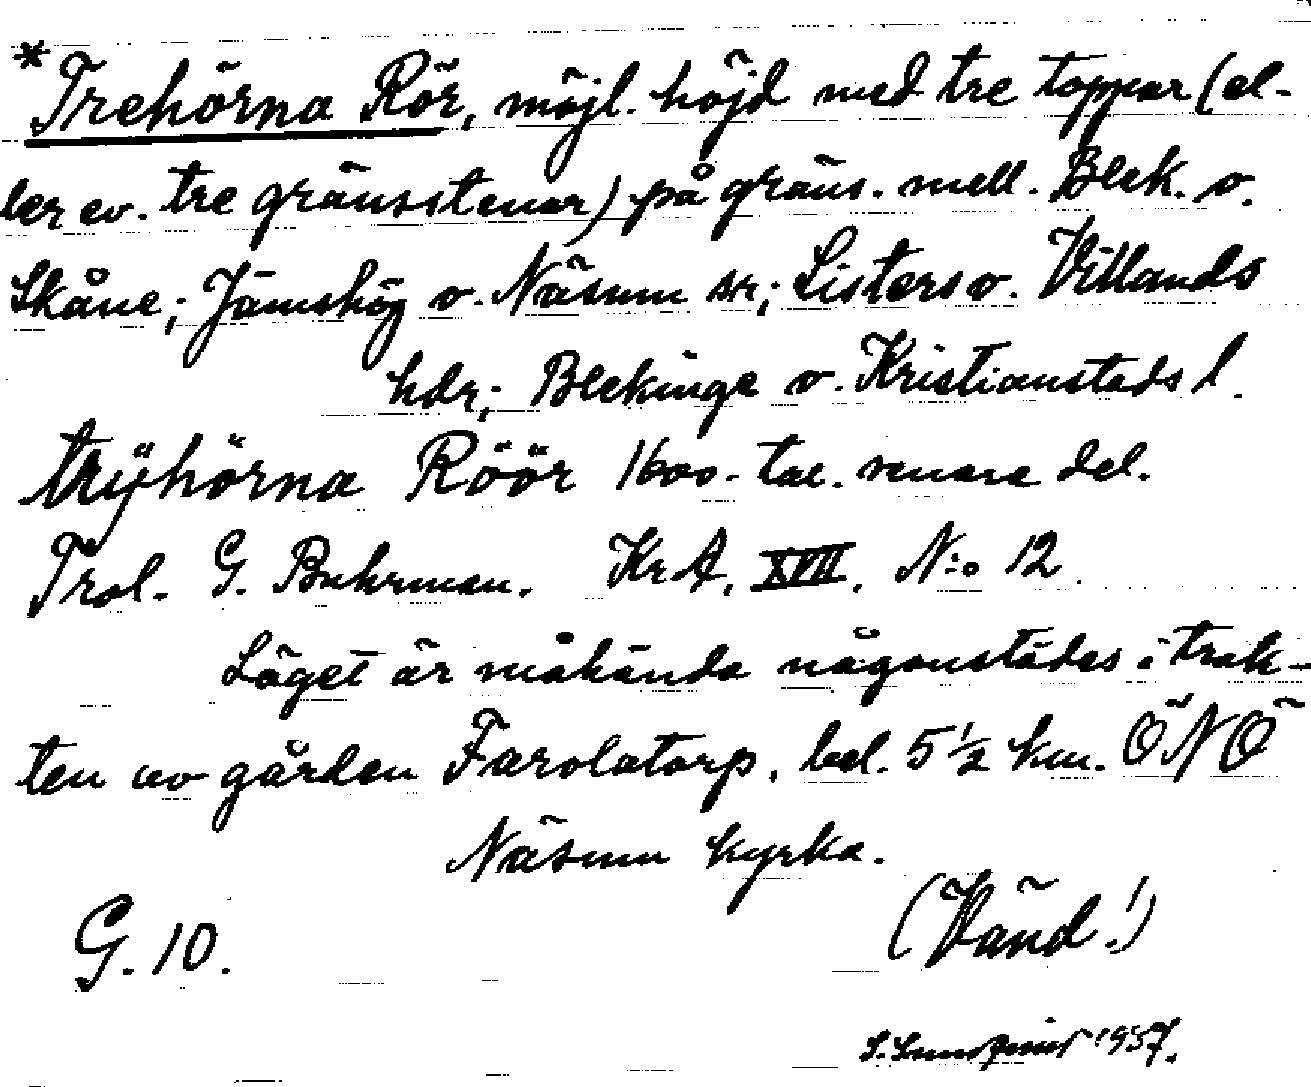 *Trehörna Rör, möjl. höjd med tre toppar (el-
ler ev. tre gränsstenar) på gräns. mell. Blek. o.
Skåne; Jämshög o. Näsum snr; Listers o. Villands
hdr; Blekinge o. Kristianstads l.
trÿhörna Röör 1600-tal. senare del.
Trol. G. Buhrman. KrA, XVII, N:o 12.
Läget är måhända någonstädes i trak-
ten av gården Farolatorp, bel. 5 ½ km. ÖNÖ
Näsum kyrka.
(Vänd!)
G. 10.
1957.